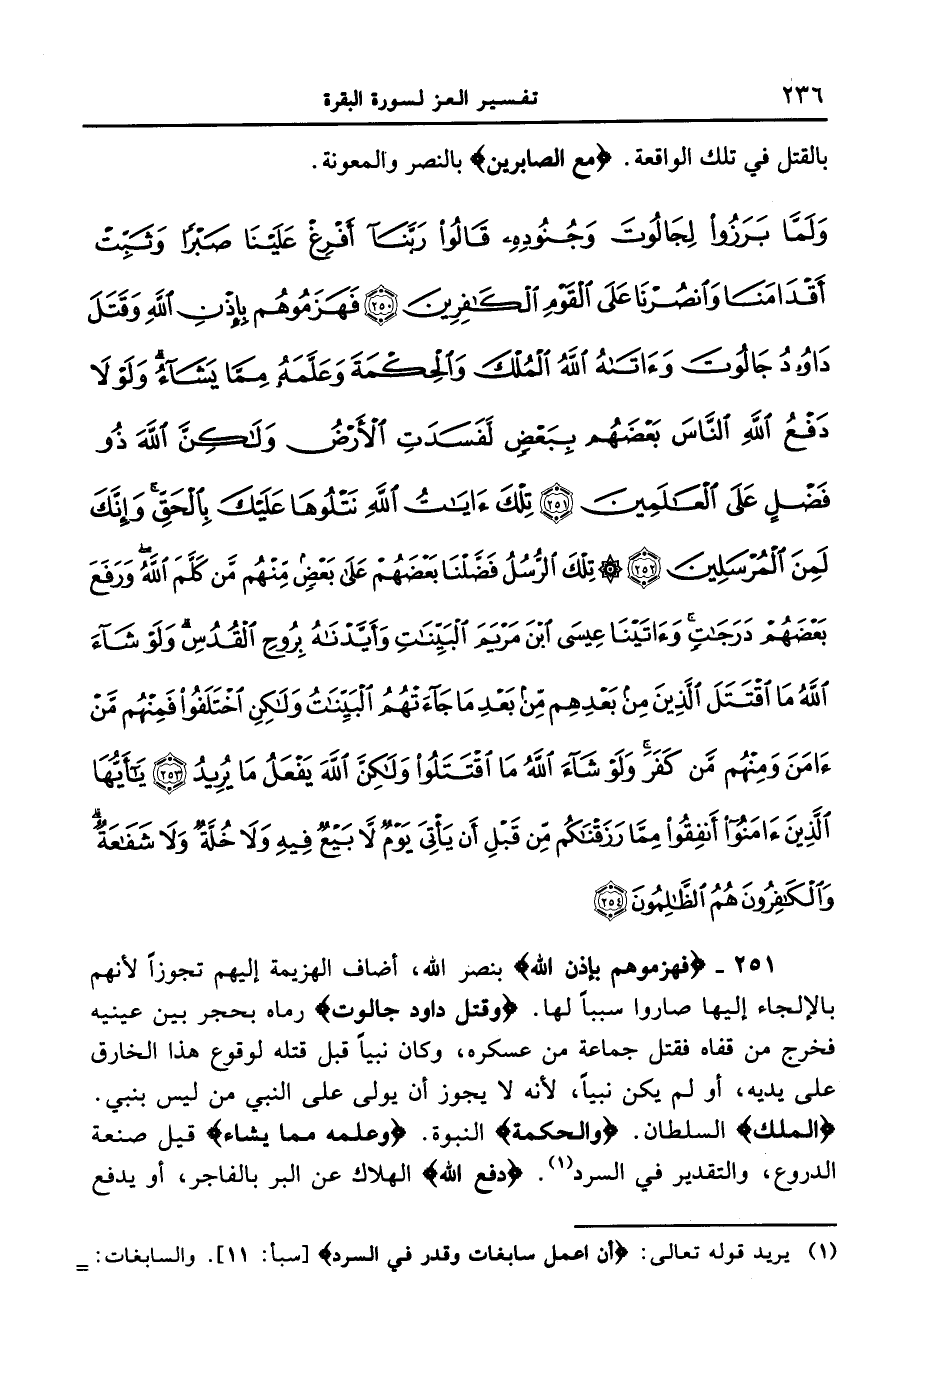 ٢٣٦ تفسير العز لسورة البقرة
بالقتل في تلك الواقعة . ﴿مع الصابرين﴾ بالنصر والمعونة.
وَلَمَّا بَرَزُواْ لِجَالُوتَ وَجُنُودِهِۦ قَالُواْ رَبَّنَآ أَفْرِغْ عَلَيْنَا صَبْرًا وَثَبِّتْ
أَقْدَامَنَا وَٱنصُرْنَا عَلَى ٱلْقَوْمِ ٱلْكَٰفِرِينَ ٢٥٠ فَهَزَمُوهُم بِإِذْنِ ٱللَّهِ وَقَتَلَ
دَاوُۥدُ جَالُوتَ وَءَاتَىٰهُ ٱللَّهُ ٱلْمُلْكَ وَٱلْحِكْمَةَ وَعَلَّمَهُۥ مِمَّا يَشَآءُ ۗ وَلَوْلَا
دَفْعُ ٱللَّهِ ٱلنَّاسَ بَعْضَهُم بِبَعْضٍ لَّفَسَدَتِ ٱلْأَرْضُ وَلَٰكِنَّ ٱللَّهَ ذُو
فَضْلٍ عَلَى ٱلْعَٰلَمِينَ ٢٥١ تِلْكَ ءَايَٰتُ ٱللَّهِ نَتْلُوهَا عَلَيْكَ بِٱلْحَقِّ ۚ وَإِنَّكَ
لَمِنَ ٱلْمُرْسَلِينَ ٢٥٢ ۞ تِلْكَ ٱلرُّسُلُ فَضَّلْنَا بَعْضَهُمْ عَلَىٰ بَعْضٍ ۘ مِّنْهُم مَّن كَلَّمَ ٱللَّهُ ۖ وَرَفَعَ
بَعْضَهُمْ دَرَجَٰتٍ ۚ وَءَاتَيْنَا عِيسَى ٱبْنَ مَرْيَمَ ٱلْبَيِّنَٰتِ وَأَيَّدْنَٰهُ بِرُوحِ ٱلْقُدُسِ ۗ وَلَوْ شَآءَ
ٱللَّهُ مَا ٱقْتَتَلَ ٱلَّذِينَ مِنۢ بَعْدِهِم مِّنۢ بَعْدِ مَا جَآءَتْهُمُ ٱلْبَيِّنَٰتُ وَلَٰكِنِ ٱخْتَلَفُواْ فَمِنْهُم مَّنْ
ءَامَنَ وَمِنْهُم مَّن كَفَرَ ۚ وَلَوْ شَآءَ ٱللَّهُ مَا ٱقْتَتَلُواْ وَلَٰكِنَّ ٱللَّهَ يَفْعَلُ مَا يُرِيدُ ٢٥٣ يَٰٓأَيُّهَا
ٱلَّذِينَ ءَامَنُوٓاْ أَنفِقُواْ مِمَّا رَزَقْنَٰكُم مِّن قَبْلِ أَن يَأْتِىَ يَوْمٌ لَّا بَيْعٌ فِيهِ وَلَا خُلَّةٌ وَلَا شَفَٰعَةٌ ۗ
وَٱلْكَٰفِرُونَ هُمُ ٱلظَّٰلِمُونَ ٢٥٤
٢٥١ - ﴿فهزموهم بإذن الله﴾ بنصر الله، أضاف الهزيمة إليهم تجوزاً لأنهم
بالإلجاء إليها صاروا سبباً لها. ﴿وقتل داود جالوت﴾ رماه بحجر بين عينيه
فخرج من قفاه فقتل جماعة من عسكره، وكان نبياً قبل قتله لوقوع هذا الخارق
على يديه، أو لم يكن نبياً، لأنه لا يجوز أن يولى على النبي من ليس بنبي.
﴿الملك﴾ السلطان. ﴿والحكمة﴾ النبوة. ﴿وعلمه مما يشاء﴾ قيل صنعة
الدروع، والتقدير في السرد(١). ﴿دفع الله﴾ الهلاك عن البر بالفاجر، أو يدفع
(١) يريد قوله تعالى: ﴿أن اعمل سابغات وقدر في السرد﴾ [سبأ: ١١]. والسابغات: =